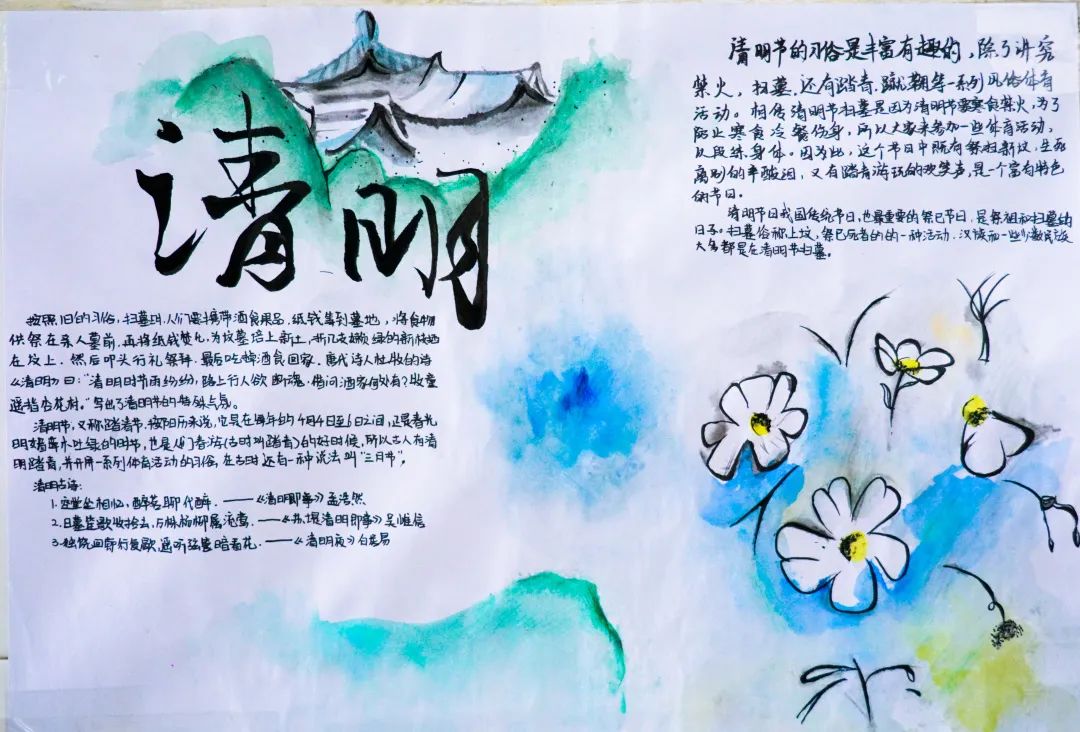 清明
清明节的习俗是丰富有趣的，除了讲究
禁火，扫墓，还有踏青，蹴鞠等一系列风俗体育
活动。相传清明节扫墓是因为清明节要寒食禁火，为了
防止寒食冷餐伤身，所以大家来参加一些体育活动，
以段练身体。因为此，这个节日中既有祭扫新坟，生死
离别的辛酸泪，又有踏青游玩的欢笑声，是一个富有特色
的节日。
清明节日我国传统节日，也最重要的祭已节日，是祭祖和扫墓的
日子。扫墓俗称上坟，祭已死者的的一种活动，汉族和一些少数民族
大多都是在清明节扫墓。
按照旧的习俗，扫墓时，人们要携带酒食果品，纸钱等到墓地，将食物
供祭在亲人墓前，再将纸钱焚化，为坟墓培上新土，折几支嫩绿的新枝插
在坟上，然后叩头行礼祭拜，最后吃掉酒食回家，唐代诗人杜牧的诗
《清明》曰："清明时节雨纷纷，路上行人欲断魂，借问酒家何处有？牧童
遥指杏花村。"写出了清明节的特殊气氛。
清明节，又称踏青节，按阳历来说，它是在每年的4月4日至6日之间，正是春光
明媚草木吐绿的时节，也是人们春游(古时叫踏青)的好时候，所以古人有清
明踏青，并开展一系列体育活动的习俗，在古时还有一种说法叫"三月节"。
清明古诗：
1.空堂坐相忆，酌茗聊代醉．——《清明即事》孟浩然
2.日暮笙歌收拾去，万株杨柳属流莺．——《苏堤清明即事》吴惟信
3.独绕回廊行复歇，遥听弦管暗看花．——《清明夜》白居易